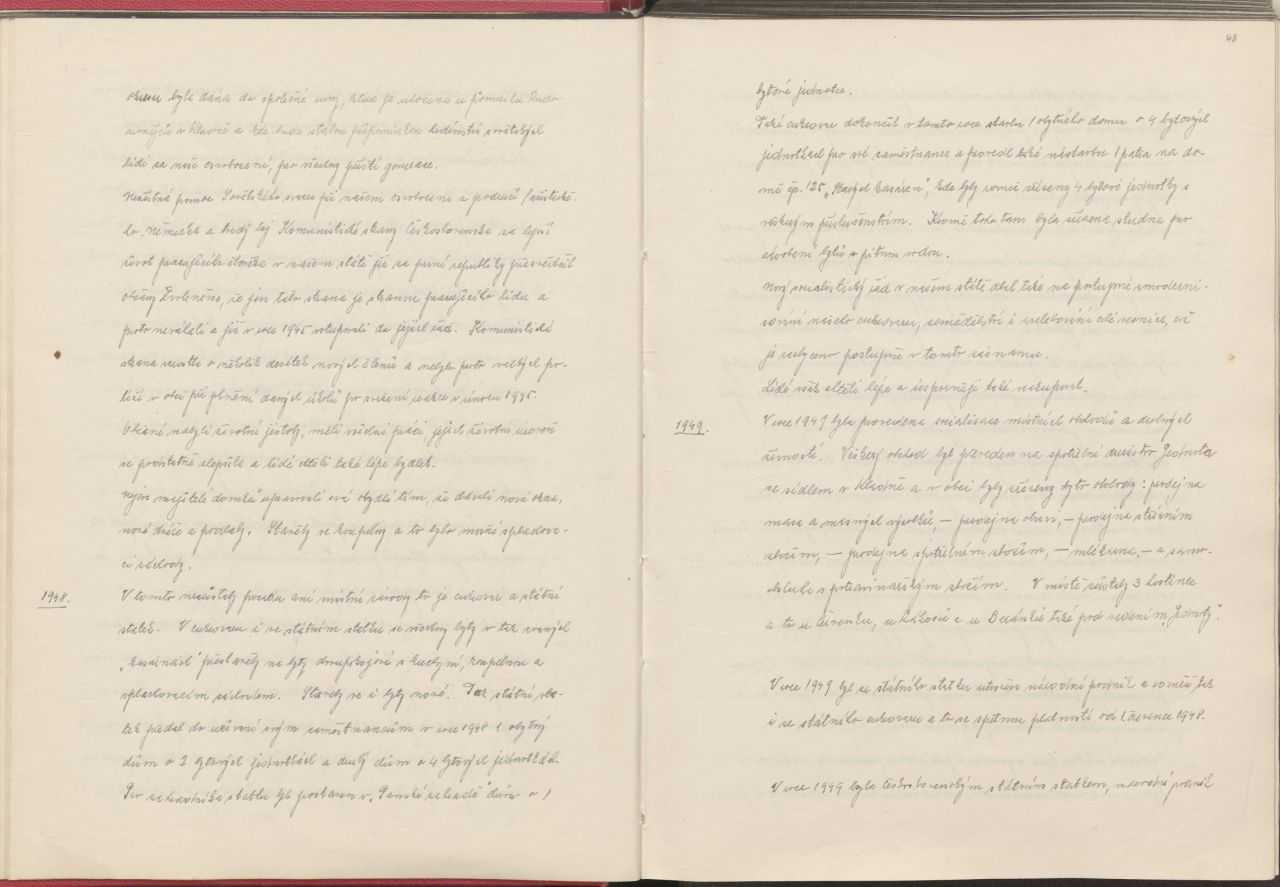 byla dána do společné urny, která je uložena u pomníku Rudo-
armějců v Kladně a kde bude stálou připomínkou hrdinství sovětských
lidí za naše osvobození, pro všechny příští generace.
Nezištná pomoc Sovětského svazu při našem osvobození z područí fašistické-
ho Německa a tvrdý boj Komunistické strany Československa za lepší
život pracujícího člověka v našem státě již za první republiky přesvědčil
občany Zvoleněvsi, že jen tato strana je stranou pracujícího lidu a
proto neváhali a již v roce 1945 vstupovali do jejích řad. Komunistická
strana vzrostla o několik desítek nových členů a nebylo proto velkých po-
tíží v obci při plnění daných úkolů po svržení reakce v únoru 1948.
Občané nabyli životní jistoty, měli všichni práci, jejich životní úroveň
se podstatně zlepšila a lidé chtěli také lépe bydlet.
Nejprve majitelé domků upravovali svá obydlí tím, že dávali nová okna,
nové dveře a podlahy. Stavěly se koupelny a to bylo možné splachova-
cí záchody.
1948.
V tomto nezůstaly pozadu ani místní závody to je cukrovar a státní
statek. V cukrovaru i ve státním statku se všechny byty v tak zvaných
„kasárnách" přestavěly na byty dvoupokojové s kuchyní, koupelnou a
splachovacím záchodem. Stavěly se i byty nové. Tak státní sta-
tek předal do užívání svým zaměstnancům v roce 1948 1 obytný
dům o 3 bytových jednotkách a druhý dům o 4 bytových jednotkách.
Pro zahradníka statku byl postaven v „Panské zahradě" dům o 1
60
bytové jednotce.
Také cukrovar dokončil v tomto roce stavbu 1 obytného domu o 4 bytových
jednotkách pro své zaměstnance a provedl také nástavbu 1 patra na do-
mě čp. 125 „Starých kasáren", kde byly rovněž zřízeny 4 bytové jednotky s
veškerým příslušenstvím. Kromě toho tam byla zřízena studna pro
zásobení bytů s pitnou vodou.
Nový socialistický řád v našem státě dbal také na postupné zmoderni-
sování našeho cukrovaru, zemědělství i zvelebování celé vesnice, což
je zachyceno postupně v tomto záznamu.
Lidé však chtěli lépe a úsporněji také nakupovat.
1949.
V roce 1949 byla provedena socialisace místních obchodů a drobných
živností. Veškerý obchod byl převeden na spotřební družstvo Jednota
se sídlem v Kladně a v obci byly zřízeny tyto obchody: prodejna
masa a masných výrobků, – prodejna obuvi, – prodejna střižním
zbožím, – prodejna spotřebním zbožím, – mlékárna, – a samo-
obsluha s potravinářským zbožím. V místě zůstaly 3 hostince
a to u Červenků, u Rákosů a u Beránků také pod vedením „Jednoty".
V roce 1949 byl ze státního statku utvořen národní podnik a rovněž tak
i ze státního cukrovaru a to se zpětnou platností od 1. července 1948.
V roce 1949 byla Československým státním statkem, národní podnik